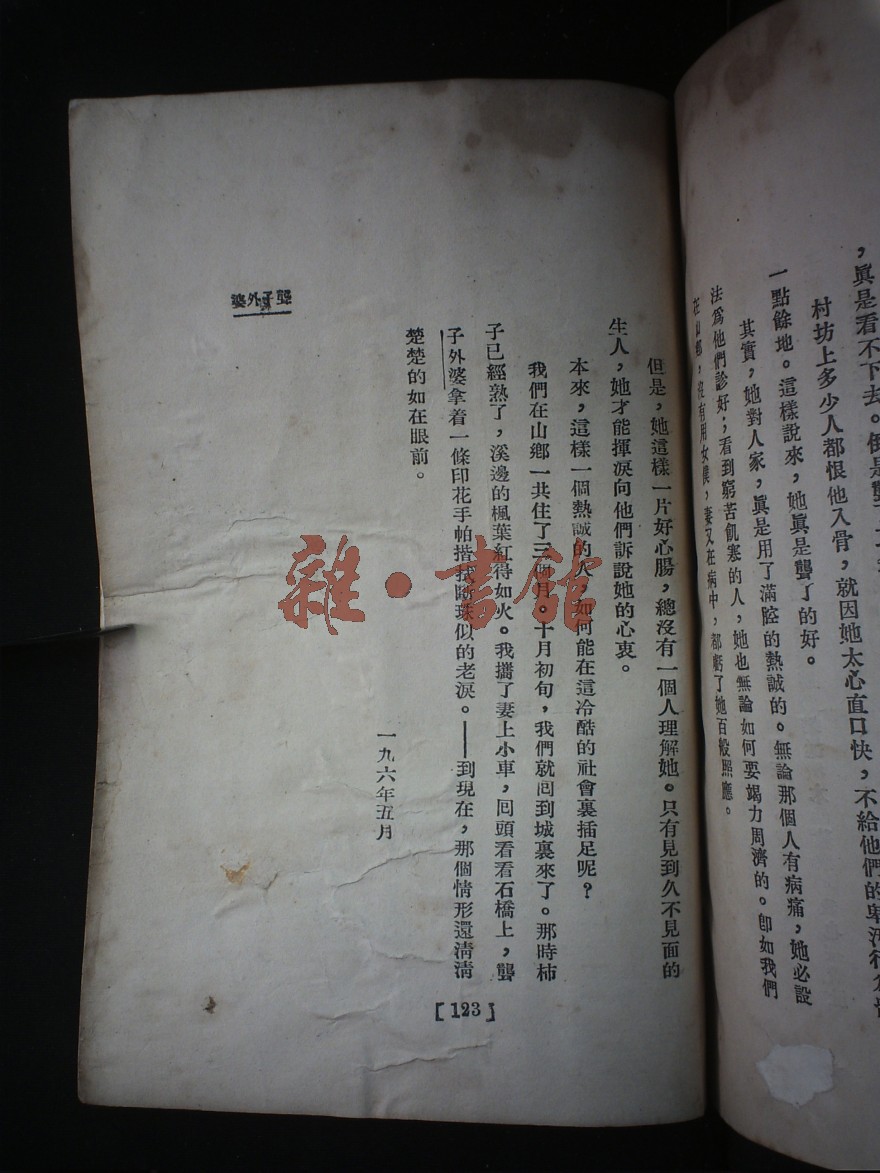 ，眞是看不下去。倒是聾
村坊上多少人都恨他入骨，就因她太心直口快，不給他們的卑汚行爲
一點餘地。這樣說來，她眞是聾了的好。
其實，她對人家，眞是用了滿腔的熱誠的。無論那個人有病痛，她必設
法爲他們診好；看到窮苦飢寒的人，她也無論如何要竭力周濟的。卽如我們
在山鄕，沒有用女僕，妻又在病中，都虧了她百般照應。
但是，她這樣一片好心腸，總沒有一個人理解她。只有見到久不見面的
生人，她才能揮淚向他們訴說她的心衷。
本來，這樣一個熱誠的人，如何能在這冷酷的社會裏插足呢？
我們在山鄕一共住了三個月。十月初旬，我們就囘到城裏來了。那時柿
子已經熟了，溪邊的楓葉紅得如火。我擕了妻上小車，囘頭看看石橋上，聾
子外婆拿着一條印花手帕揩拭斷珠似的老淚。——到現在，那個情形還淸淸
楚楚的如在眼前。
一九六年五月
聾子外婆
[123]
雜·書館